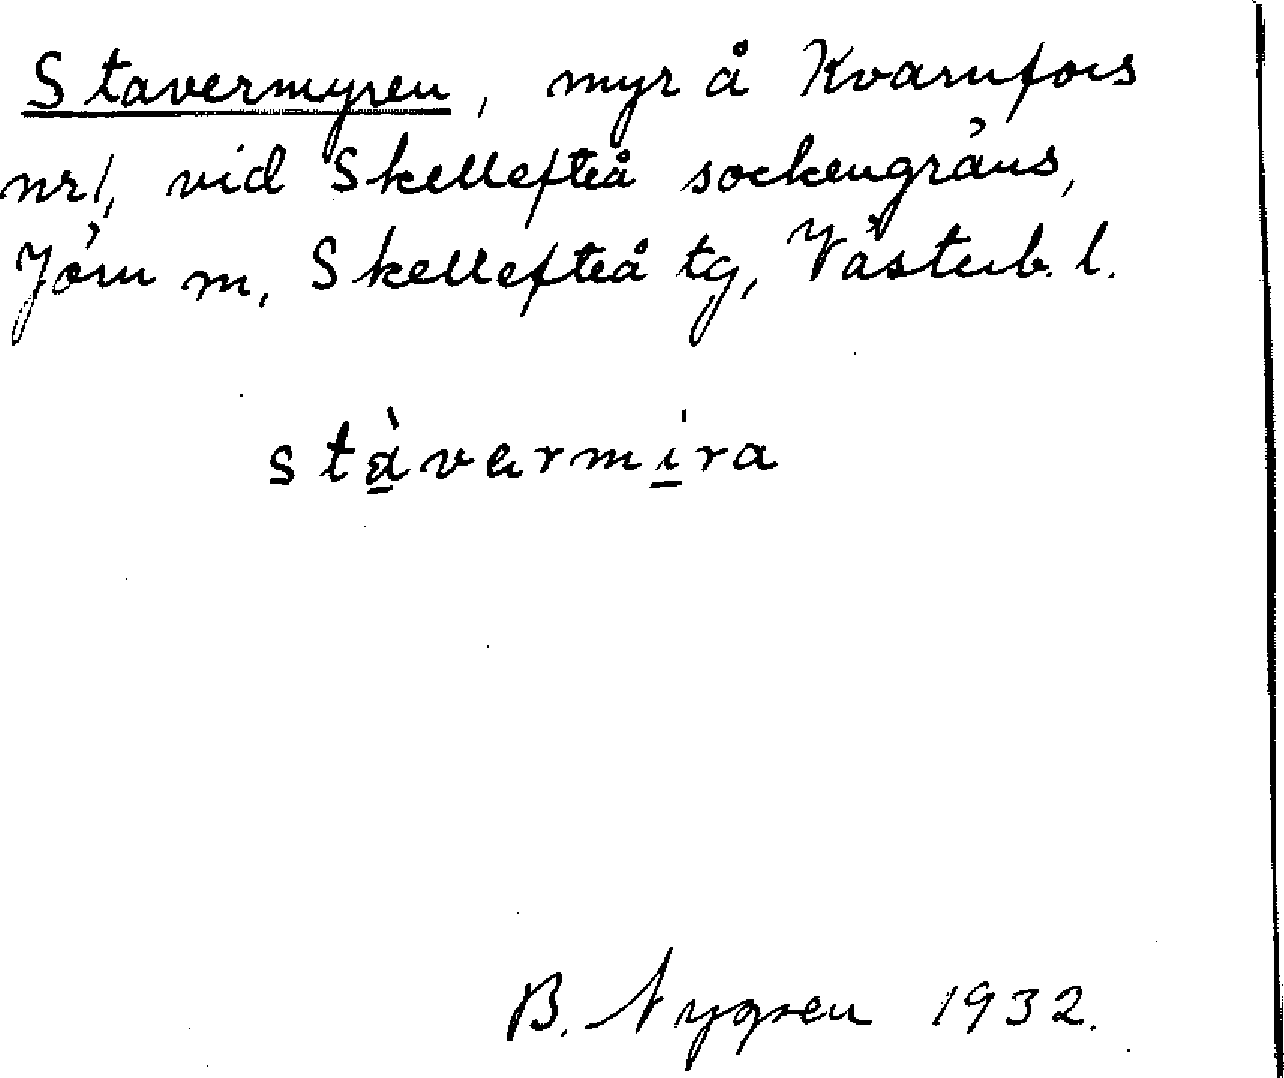 Stavermyren, myr å Kvarnfors
nr 1, vid Skellefteå sockengräns,
Jörn sn, Skellefteå tg, Västerb. l.
stàvermira
B. Nygren 1932.